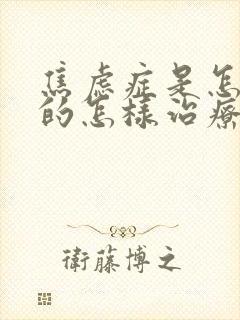 焦虑症是怎
的怎様治療
衛藤博之